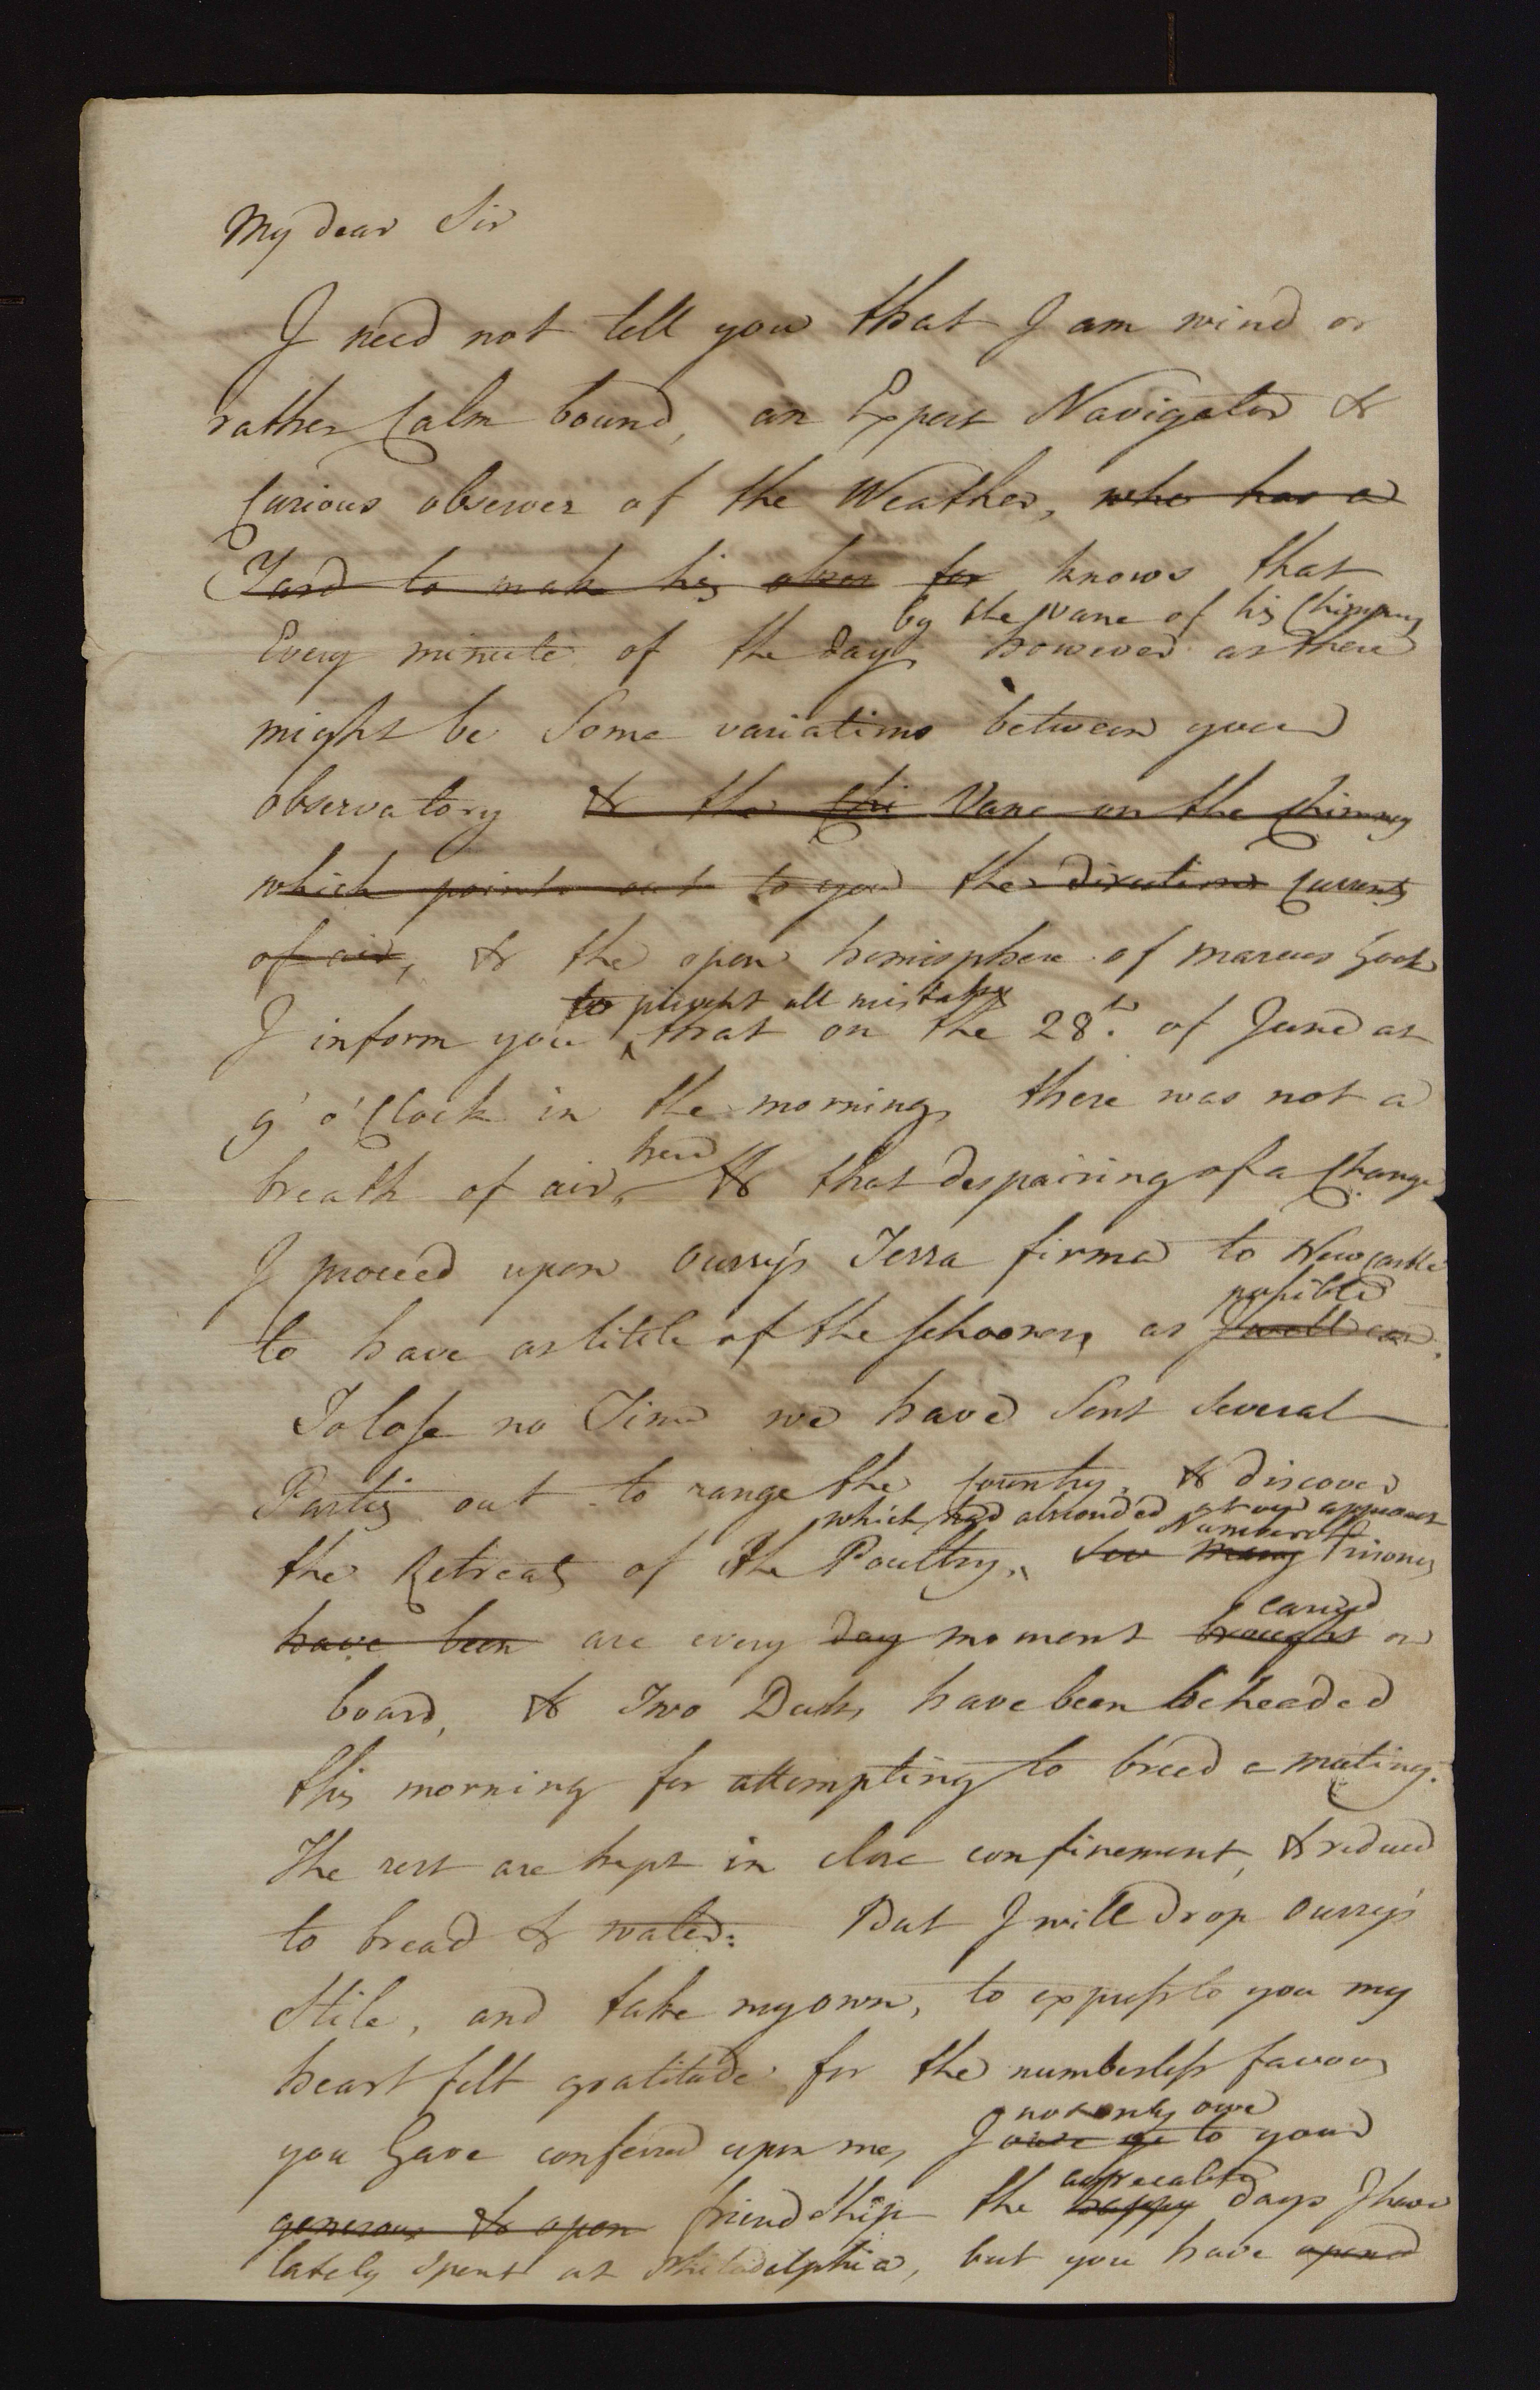 My dear Sir
I need not tell you that I am wind or
rather Calm bound, an Expert Navigator &
Curious observer of the Weather, who has a
Yard to make his obser for knows that
by the Vane of his Chimney
Every minute of the day, however as there
might be Some variations between your
observatory & the Chi Vane on the Chimney
which points out to you the direction Currents
of air, & the open hemisphere of marcus hook
to prevent all mistakes
I inform you that on the 28th. of June at
9 o'Clock in the morning, there was not a
here
breath of air, & that despairing of a Change
I proceed upon Ourry's Terra firma to New castle
possible
to have as little of the Schooner, as I well can.
To lose no Time we have Sent Several
Parties out to range the Country, & discover
which had absconded at our approach
the Retreats of the Poultry,
Number of
many Prisoners
caried
have been are every day moment brought on
board, & Two Ducks have been beheaded
this morning for attempting to breed a mutiny.
The rest are kept in close confinement, & reduced
to bread & water. But I will drop Ourry's
Stile, and take my own, to express to you my
heart felt gratitude for the numberless favours
not only owe
you have conferred upon me, I owe to your
agreeable
generous & open friendship the happy days I have
lately Spent at Philadelphia, but you have opened